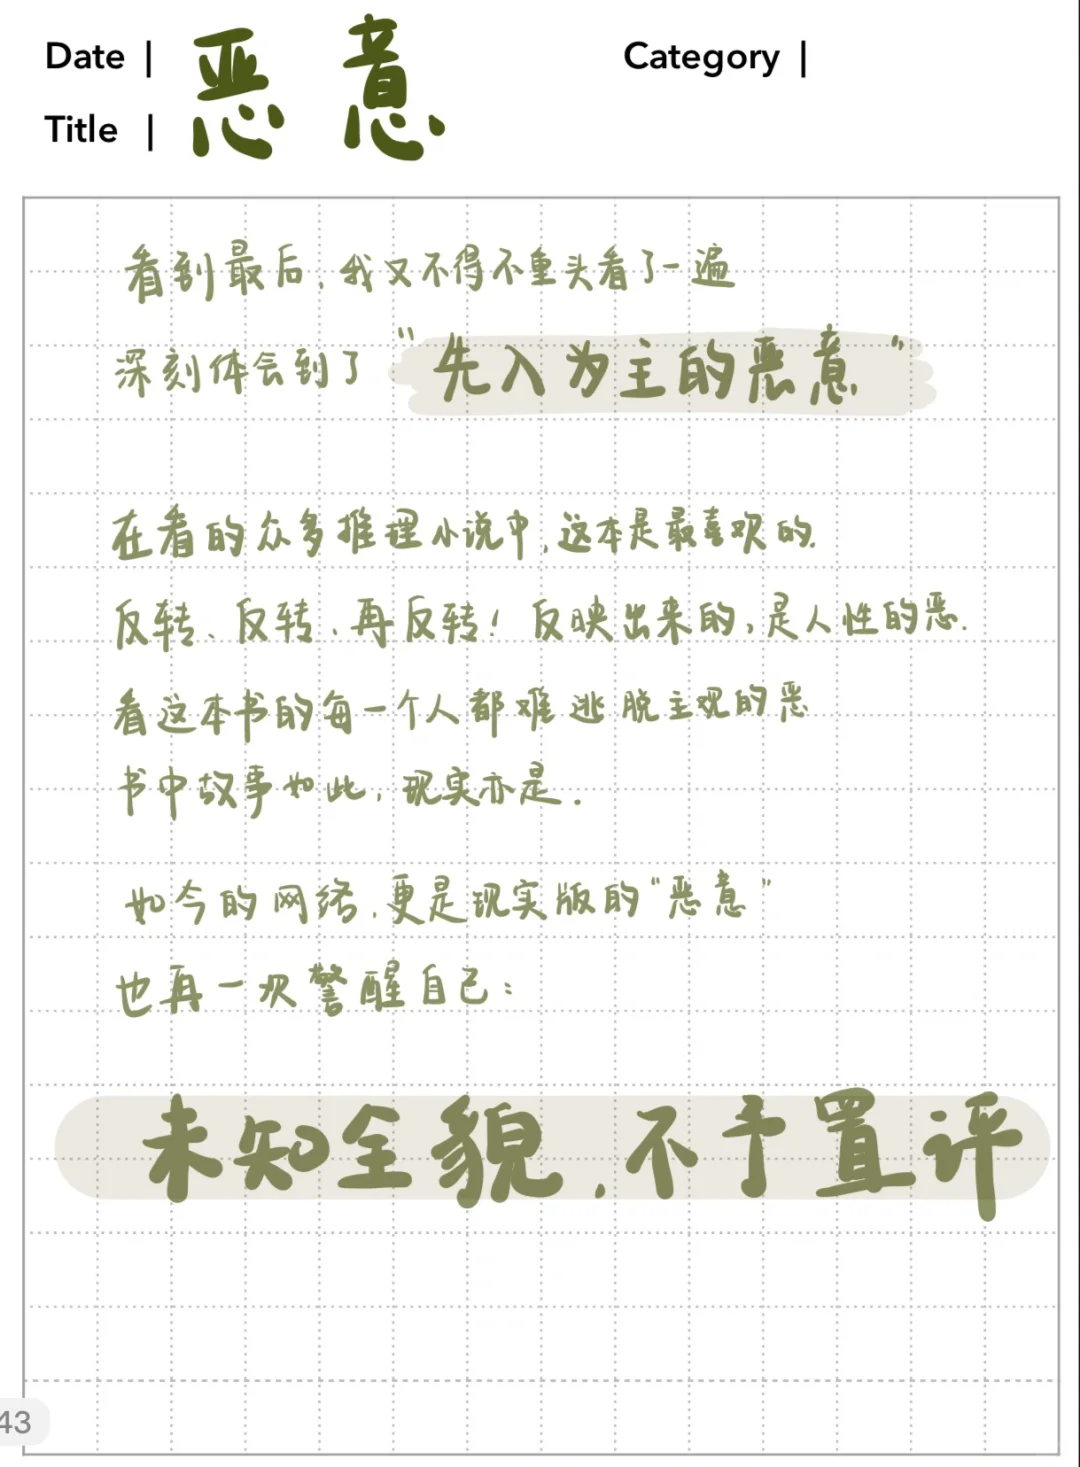 Date | 恶意 Category |
Title |
看到最后,我又不得不重头看了一遍
深刻体会到了“先入为主的恶意”
在看的众多推理小说中,这本是最喜欢的.
反转、反转、再反转!反映出来的,是人性的恶.
看这本书的每一个人都难逃脱主观的恶
书中故事如此,现实亦是.
如今的网络,更是现实版的“恶意”
也再一次警醒自己:
未知全貌,不予置评
43